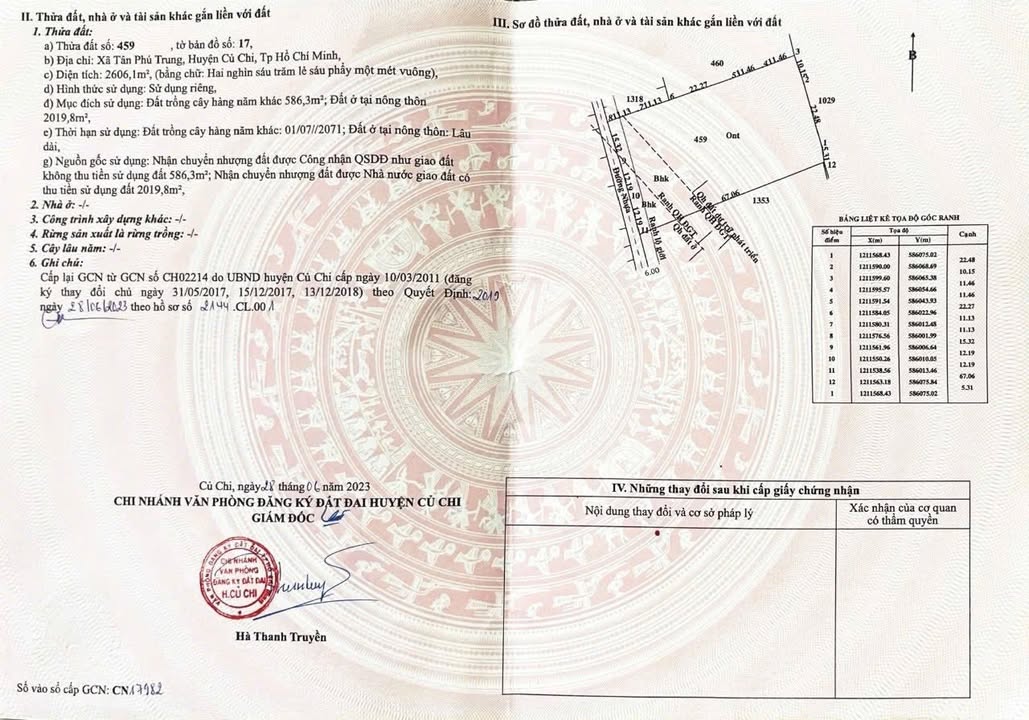 II. Thửa đất, nhà ở và tài sản khác gắn liền với đất
1. Thửa đất:
a) Thửa đất số: 459 , tờ bản đồ số: 17,
b) Địa chỉ: Xã Tân Phú Trung, Huyện Củ Chi, Tp Hồ Chí Minh,
c) Diện tích: 2606,1m², (bằng chữ: Hai nghìn sáu trăm lẻ sáu phẩy một mét vuông),
d) Hình thức sử dụng: Sử dụng riêng,
đ) Mục đích sử dụng: Đất trồng cây hàng năm khác 586,3m²; Đất ở tại nông thôn
2019,8m²,
e) Thời hạn sử dụng: Đất trồng cây hàng năm khác: 01/07//2071; Đất ở tại nông thôn: Lâu
dài,
g) Nguồn gốc sử dụng: Nhận chuyển nhượng đất được Công nhận QSDĐ như giao đất
không thu tiền sử dụng đất 586,3m²; Nhận chuyển nhượng đất được Nhà nước giao đất có
thu tiền sử dụng đất 2019,8m²,
2. Nhà ở: -/-
3. Công trình xây dựng khác: -/-
4. Rừng sản xuất là rừng trồng: -/-
5. Cây lâu năm: -/-
6. Ghi chú:
Cấp lại GCN từ GCN số CH02214 do UBND huyện Củ Chi cấp ngày 10/03/2011 (đăng
ký thay đổi chủ ngày 31/05/2017, 15/12/2017, 13/12/2018) theo Quyết Định: 2019
ngày 28/06/2023 theo hồ sơ số 2144.CL.001
Củ Chi, ngày 28 tháng 06 năm 2023
CHI NHÁNH VĂN PHÒNG ĐĂNG KÝ ĐẤT ĐAI HUYỆN CỦ CHI
GIÁM ĐỐC
CHI NHÁNH
VĂN PHÒNG
ĐĂNG KÝ ĐẤT ĐAI
H.CỦ CHI
Hà Thanh Truyền
Số vào sổ cấp GCN: CN17982
III. Sơ đồ thửa đất, nhà ở và tài sản khác gắn liền với đất
B
460
3
511.46
411.46
10.15
22.27
6
1318
711.13
811.13
1029
22.48
459
Ont
15.32
9
5.31
12
12.19
Bhk
67.06
1353
10
Bhk
12.19
11
Đường Nhựa
Ranh lộ giới
Ranh QH ĐGT
Qh đất ở
Qh đất dự trữ phát triển
Ranh QH ĐGT
6.00
BẢNG LIỆT KÊ TỌA ĐỘ GÓC RANH
Số hiệu điểm Tọa độ Cạnh
X(m) Y(m)
1 1211568.43 586075.02
22.48
2 1211590.00 586068.69
10.15
3 1211599.60 586065.38
11.46
4 1211595.57 586054.66
11.46
5 1211591.54 586043.93
22.27
6 1211584.05 586022.96
11.13
7 1211580.31 586012.48
11.13
8 1211576.56 586001.99
15.32
9 1211561.96 586006.64
12.19
10 1211550.26 586010.05
12.19
11 1211538.56 586013.46
67.06
12 1211563.18 586075.84
5.31
1 1211568.43 586075.02
IV. Những thay đổi sau khi cấp giấy chứng nhận
Nội dung thay đổi và cơ sở pháp lý
Xác nhận của cơ quan
có thẩm quyền